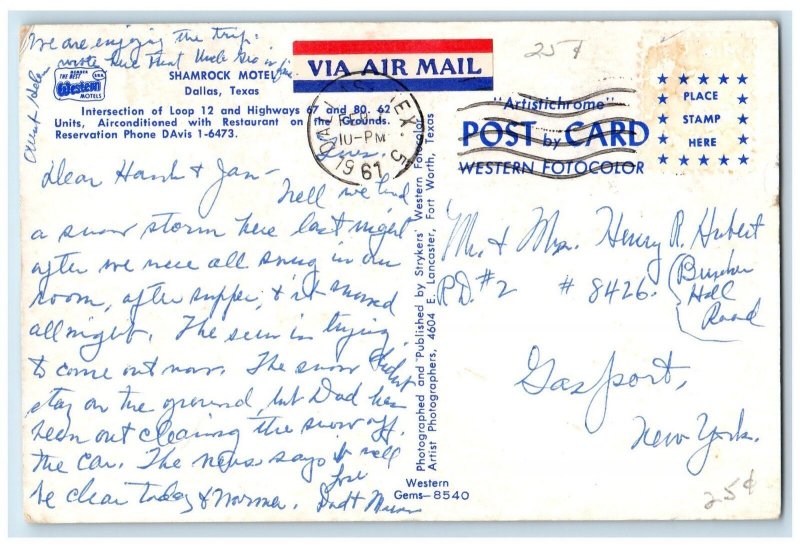 We are enjoying the trip.
wrote here that Uncle Geo is fine
Aunt Helen
THE NUMBER BEST
Western
MOTELS
USA
SHAMROCK MOTEL
Dallas, Texas
Intersection of Loop 12 and Highways 67 and 80. 62
Units, Airconditioned with Restaurant on the Grounds.
Reservation Phone DAvis 1-6473.
Tues.
Dear Hank & Jan -
Well we had
a snow storm here last night
after we were all snug in our
room, after supper, & it snowed
all night. The sun is trying
to come out now. The snow didn't
stay on the ground, but Dad has
been out clearing the snow off
the car. The news says it will
be clear today & warmer.
Love
Dad & Mum
VIA AIR MAIL
DALLAS, TEX.
10-PM
1961
Photographed and Published by Strykers' Western Fotocolor
Artist Photographers, 4604 E. Lancaster, Fort Worth, Texas
Western
Gems-8540
25¢
"Artistichrome"
POST by CARD
WESTERN FOTOCOLOR
PLACE
STAMP
HERE
Mr. & Mrs. Henry R. Hubert
R.D. #2 # 8426
Hall
Road
Gasport,
New York.
25¢